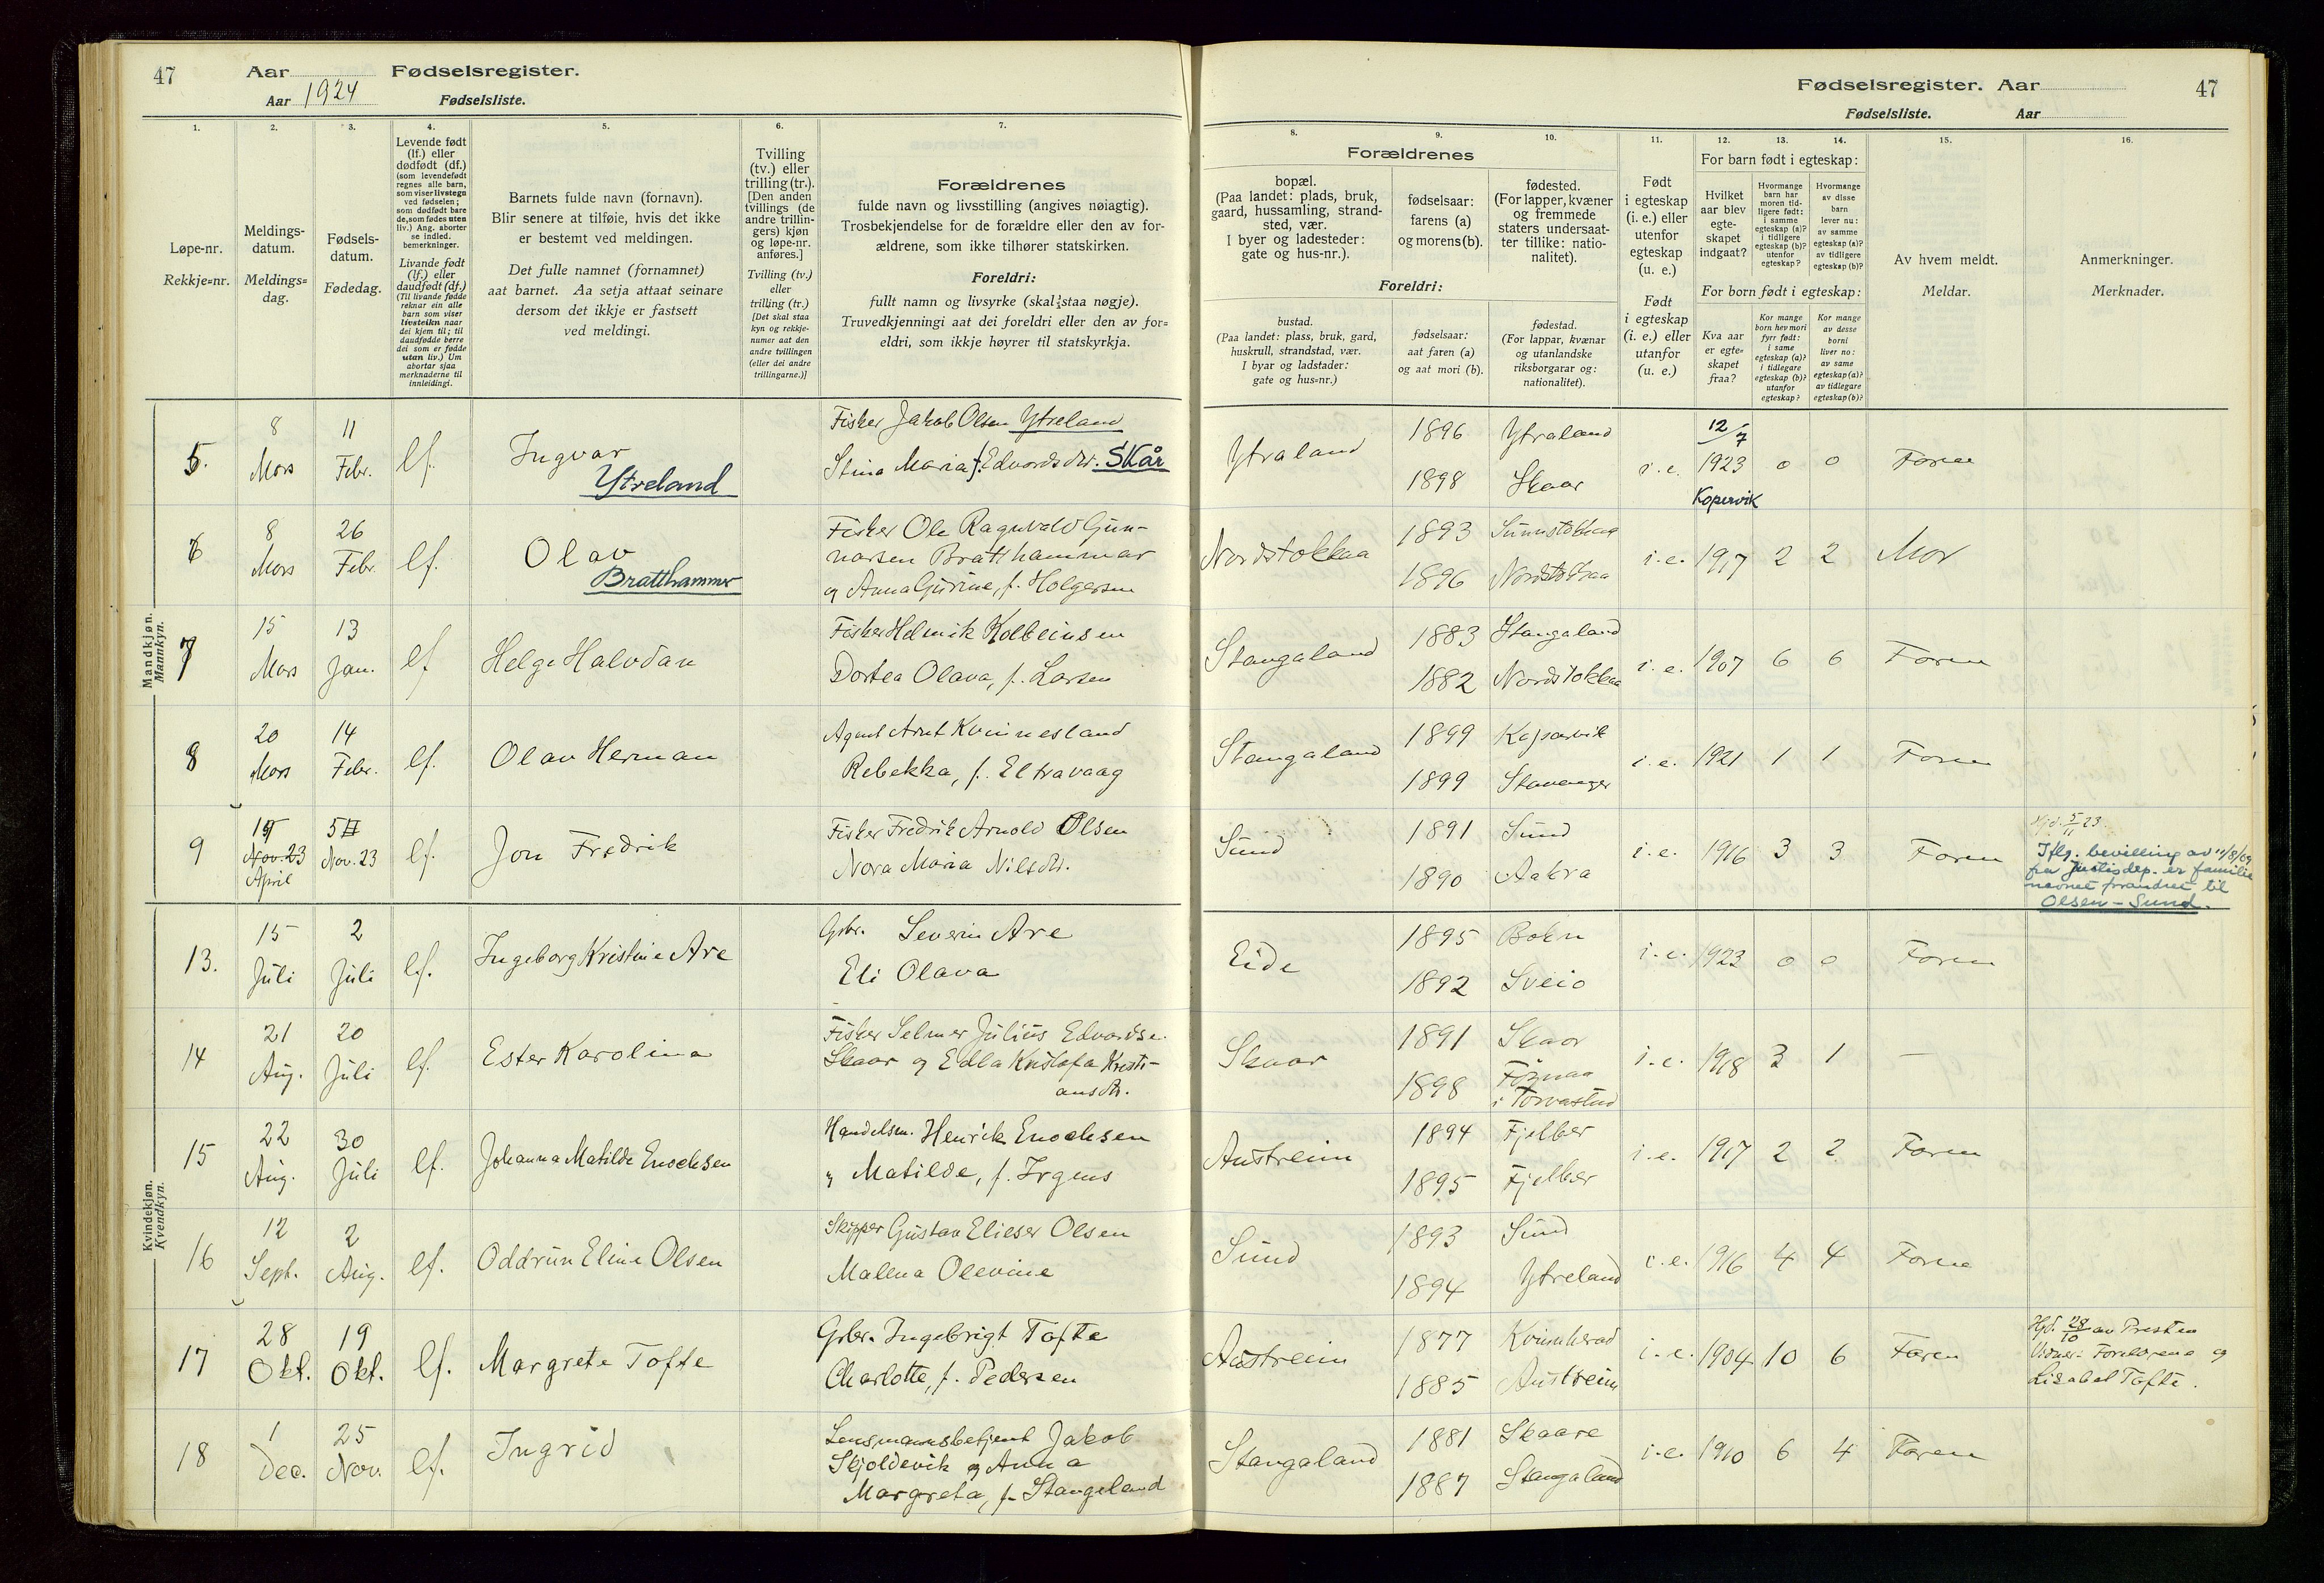 47
Aar
Fødselsregister.
Aar 1924
Fødselsliste.
1.
Løpe-nr.
Rekkje=nr.
2.
Meldings-
datum.
Meldings=
dag.
3.
Fødsels-
datum.
Fødedag.
4.
Levende født
(lf.) eller
dødfødt (df.)
(som levendefødt
regnes alle barn,
som viser livstegn
ved fødselen;
som dødfødt bare
de, som fødes uten
liv.) Ang. aborter
se indled.
bemerkninger.
Livande født
(lf.) eller
daudfødt (df.)
(Til livande fødde
reknar ein alle
barn som viser
livsteikn naar
dei kjem til; til
daudfødde berre
dei som er fødde
utan liv.) Um
abortar sjaa
merknaderne til
innleidingi.
5.
Barnets fulde navn (fornavn).
Blir senere at tilføie, hvis det ikke
er bestemt ved meldingen.
Det fulle namnet (fornamnet)
aat barnet. Aa setja attaat seinare
dersom det ikkje er fastsett
ved meldingi.
6.
Tvilling
(tv.) eller
trilling (tr.).
[Den anden
tvillings (de
andre trillin-
gers) kjøn
og løpe-nr.
anføres.]
Tvilling (tv.)
eller
trilling (tr.)
[Det skal staa
kyn og rekkje-
numer aat den
andre tvillingen
(eller dei andre
trillingarne.)]
7.
Forældrenes
fulde navn og livsstilling (angives nøiagtig).
Trosbekjendelse for de forældre eller den av for-
ældrene, som ikke tilhører statskirken.
Foreldri:
fullt namn og livsyrke (skal staa nøgje).
Truvedkjenningi aat dei foreldri eller den av for=
eldri, som ikkje høyrer til statskyrkja.
Mandkjøn.
Mannkyn.
5.
8
Mars
11
Febr.
lf.
Ingvar
Ytreland
Fisker Jakob Olsen Ytreland
Stina Maria f. Edvardsdtr. Skår
6
8
Mars
26
Febr.
lf.
Olav
Bratthammer
Fisker Ole Ragnvald Gun-
narsen Bratthammar
og Anna Gurine, f. Holgersen
7
15
Mars
13
Jan.
lf
Helge Halvdan
Fisker Helmik Kolbeinsen
Dortea Olava, f. Larsen
8
20
Mars
14
Febr.
lf.
Olav Herman
Agent Arnt Kvinnesland
Rebekka, f. Eltravaag
9
Nov. 23
April
5
Nov. 23
lf.
Jon Fredrik
Fisker Fredrik Arnold Olsen
Nora Maria Nilsdtr.
Kvindekjøn.
Kvendkyn.
13.
15
Juli
2
Juli
lf.
Ingeborg Kristine Are
Gbr. Severin Are
Eli Olava
14
21
Aug.
20
Juli
lf.
Ester Karolina
Fisker Selmer Julius Edvardse.
Skaar og Edla Kristofa Kristi-
ansdtr.
15
22
Aug.
30
Juli
lf.
Johanna Matilde Enochsen
Handelsm. Henrik Enochsen
" Matilde, f. Irgens
16
12
Sept.
2
Aug.
lf.
Oddrun Eline Olsen
Skipper Gustav Elieser Olsen
Malena Olevine
17
28
Okt.
19
Okt.
lf.
Margrete Tofte
Gbr. Ingebrigt Tofte
Charlotte, f. Pedersen
18
1
Dec.
25
Nov.
lf.
Ingrid
Lensmannsbetjent Jakob
Skjoldevik og Anna
Margreta, f. Stangeland
Fødselsregister. Aar
47
Fødselsliste.
Aar
8.
Forældrenes
bopæl.
(Paa landet: plads, bruk,
gaard, hussamling, strand-
sted, vær.
I byer og ladesteder:
gate og hus-nr.).
Foreldri:
bustad.
(Paa landet: plass, bruk, gard,
huskrull, strandstad, vær.
I byar og ladstader:
gate og hus=nr.)
9.
fødselsaar:
farens (a)
og morens (b).
fødselsaar:
aat faren (a)
og aat mori (b).
10.
fødested.
(For lapper, kvæner
og fremmede
staters undersaat-
ter tillike: natio-
nalitet).
fødestad.
(For lappar, kvænar
og utanlandske
riksborgarar og:
nationalitet).
11.
Født
i egteskap
(i. e.) eller
utenfor
egteskap
(u. e.)
Født
i egteskap
(i. e.) eller
utanfor
(u. e.)
12.
13.
14.
For barn født i egteskap:
Hvilket
aar blev
egte-
skapet
indgaat?
Hvormange
barn har
moren tid-
ligere født:
i samme
egteskap (a)?
i tidligere
egteskap (b)?
utenfor
egteskap?
Hvormange
av disse
barn
lever nu:
av samme
egteskap (a)?
av tidligere
egteskap (b)?
For born født i egteskap:
Kva aar
er egte=
skapet
fraa?
Kor mange
born hev mori
fyrr født:
i same
egteskap (a)?
i tidlegare
egteskap (b)?
utanfor
egteskap?
Kor mange
av desse
borni
liver no:
av same
egteskap (a)?
av tidlegare
egteskap (b)?
15.
Av hvem meldt.
Meldar.
16.
Anmerkninger.
Merknader.
Ytraland
1896
1898
Ytraland
Skaar
i. e.
12/7
1923
Kopervik
0
0
Faren
Nordstokkaa
1893
1896
Sunnstokkaa
Nordstokkaa
i. e.
1917
2
2
Mor
Stangaland
1883
1882
Stangaland
Nordstokkaa
i. e.
1907
6
6
Faren
Stangaland
1899
1899
Kopervik
Stavanger
i. e.
1921
1
1
Faren
Sund
1891
1890
Sund
Aakra
i. e.
1916
3
3
Faren
Hjd. 5/11 23
Iflg. bevilling av
fra justisdep. er familie
navnet forandret til
Olsen-Sund.
Eide
1895
1892
Bokn
Sveio
i. e.
1923
0
0
Faren
Skaar
1891
1898
Skaar
Føznaa
i Torvastad
i. e.
1918
3
1
—
Austreim
1894
1895
Fjelber
Fjelber
i. e.
1917
2
2
Faren
Sund
1893
1894
Sund
Ytreland
i. e.
1916
4
4
Faren
Austreim
1877
1885
Kvinnherad
Austreim
i. e.
1904
10
6
Faren
Hjd. 28/10 av Presten
Vidner: Foreldrene og
Lisabet Tofte.
Stangaland
1881
1887
Skaare
Stangaland
i. e.
1910
6
4
Faren